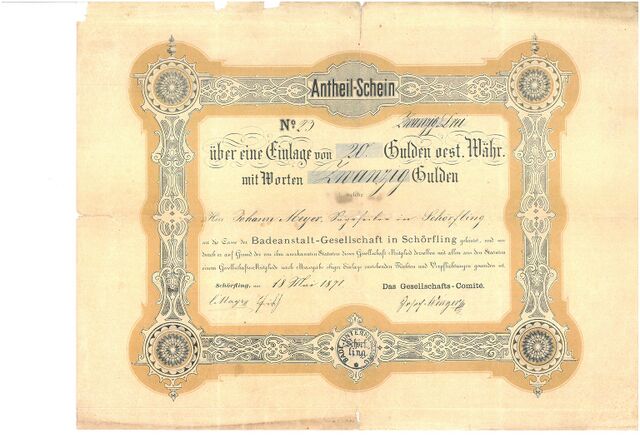 Antheil-Schein
No 23
über eine Einlage von 20 Gulden oest. Währ.
mit Worten Zwanzig Gulden
welche
Herr Johann Meyer in Schörfling
an die Casse der Badeanstalt-Gesellschaft in Schörfling geleistet, und wo-
durch er auf Grund der von ihm anerkannten Statuten dieser Gesellschaft Mitglied derselben mit allen aus den Statuten
einem Gesellschafts-Mitgliede nach Maassgabe obiger Einlage erwachsenden Rechten und Verpflichtungen geworden ist.
Schörfling, am 18 Mai 1871 Das Gesellschafts-Comité.
Schörf
ling